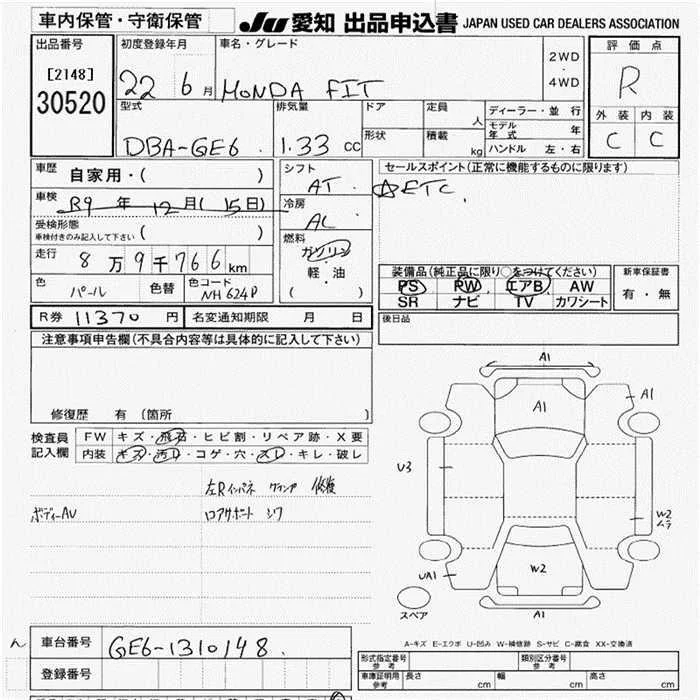 車内保管・守衛保管
JU 愛知 出品申込書 JAPAN USED CAR DEALERS ASSOCIATION
出品番号 [2148] 30520
初度登録年月 22 6月
車名・グレード HONDA FIT
2WD ・ 4WD
評価点 R
外装 内装
C C
型式 DBA-GE6
排気量 1.33 cc
ドア
形状
定員 人
積載 kg
ディーラー・並行
モデル年式 年
ハンドル 左・右
車歴 自家用・( )
車検 R9年12月(15日)
受検形態 車検付きのみ記入して下さい ( )
走行 8万9千766km
色 パール 色替 色コード NH624P
シフト AT
冷房 AC
燃料 ガソリン・軽・油 ( )
セールスポイント(正常に機能するものに限ります)
☆ETC
装備品(純正品に限り○をつけてください)
PS PW エアB AW
SR ナビ TV カワシート
新車保証書 有・無
後日品
R券 11370 円 名変通知期限 月 日
注意事項申告欄(不具合内容等は具体的に記入して下さい)
修復歴 有 (箇所 )
検査員記入欄
FW キズ・飛石・ヒビ割・リペア跡・X要
内装 キズ・汚レ・コゲ・穴・スレ・キレ・破レ
左Rインパネ クランプ 修復
ボディーAU ロアサポート シワ
A1
A1
A1
U3
W2 ムラ
UA1
W2
A1
スペア
A-キズ E-エクボ U-凹み W-補修跡 S-サビ C-腐食 XX-交換済
ん
車台番号 GE6-1310148
登録番号
形式指定番号 参考
類別区分番号 参考
車庫証明用 参考 長さ cm 幅 cm 高さ cm